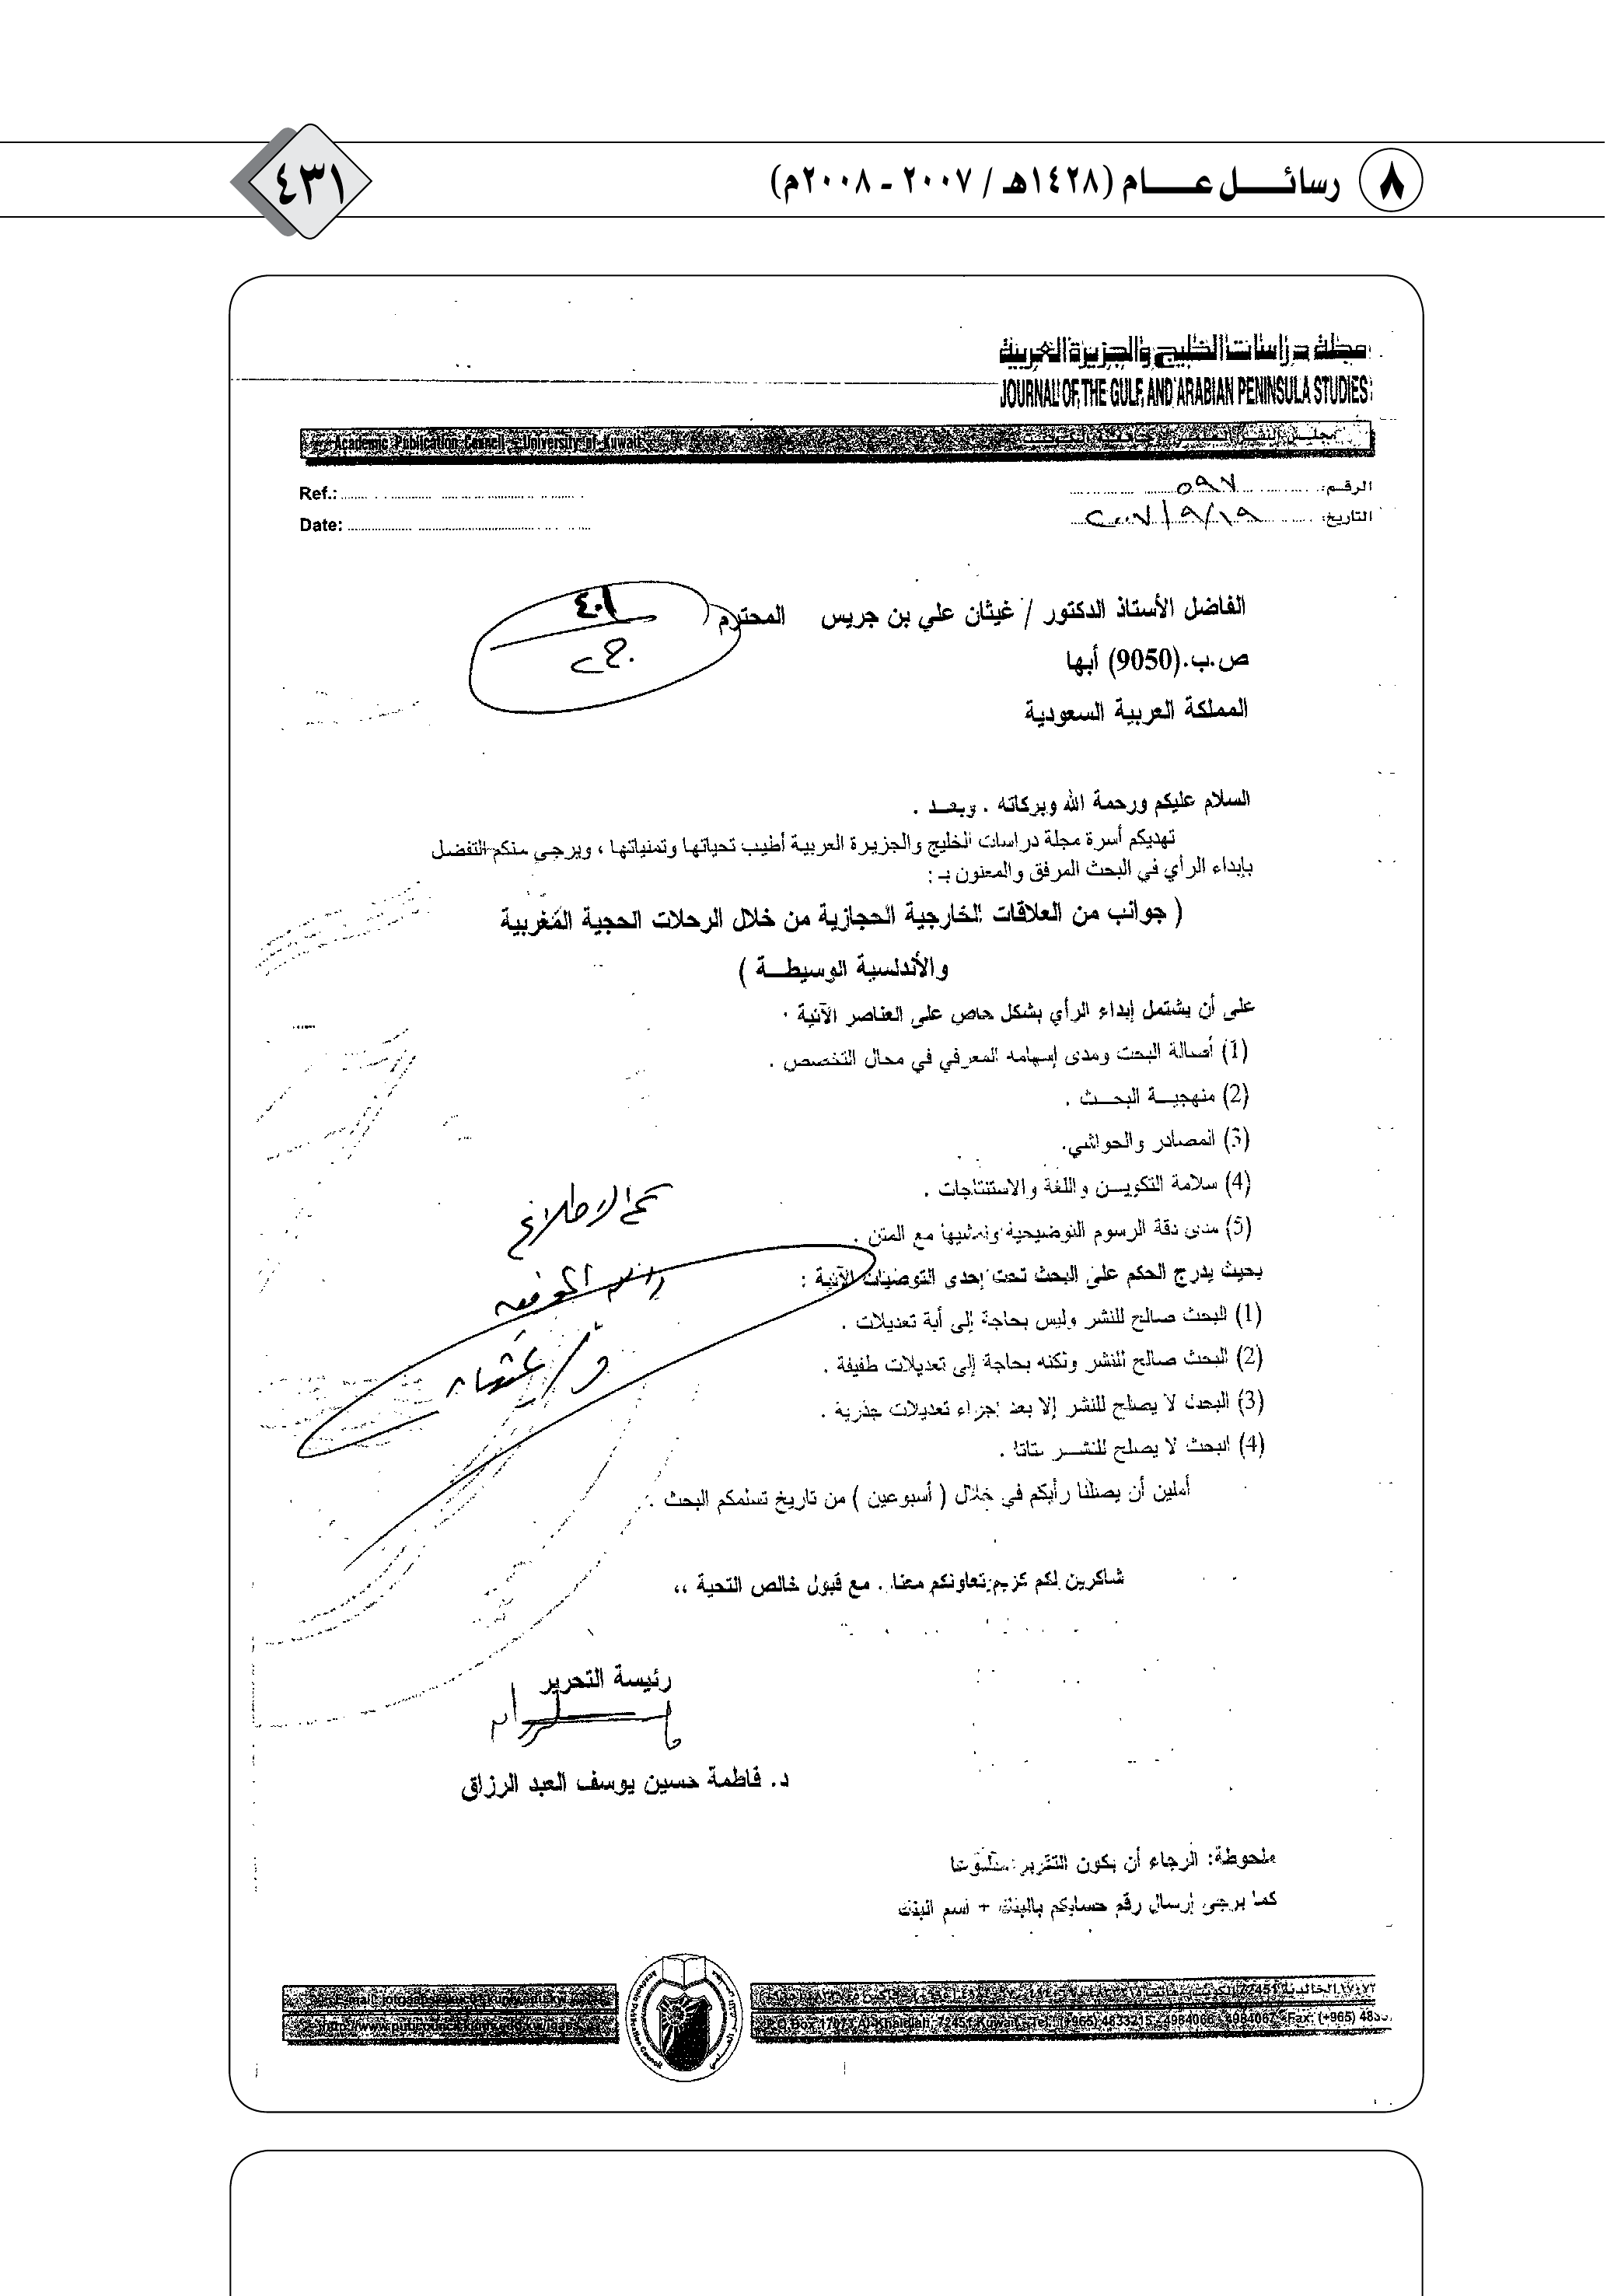 ٨ رسائل عام (١٤٢٨هـ / ٢٠٠٧ - ٢٠٠٨م)
٤٣١
مجلة دراسات الخليج والجزيرة العربية
JOURNAL OF THE GULF AND ARABIAN PENINSULA STUDIES
Academic Publication Council - University of Kuwait
مجلس النشر العلمي - جامعة الكويت
الرقم: ٥٩٧
Ref.:
التاريخ: ٢٠٠٧/٩/١٩
Date:
الفاضل الأستاذ الدكتور / غيثان علي بن جريس المحترم
٤٠١
ص.ب.(9050) أبها
المملكة العربية السعودية
السلام عليكم ورحمة الله وبركاته . وبعـد .
تهديكم أسرة مجلة دراسات الخليج والجزيرة العربية أطيب تحياتها وتمنياتها ، ويرجى منكم التفضل
بإبداء الرأي في البحث المرفق والمعنون بـ :
( جوانب من العلاقات الخارجية الحجازية من خلال الرحلات الحجية المغربية
والأندلسية الوسيطـة )
على أن يشتمل إبداء الرأي بشكل خاص على العناصر الآتية :
(1) أصالة البحث ومدى إسهامه المعرفي في مجال التخصص .
(2) منهجيـة البحـث .
(3) المصادر والحواشي.
(4) سلامة التكويـن واللغة والاستنتاجات .
(5) مدى دقة الرسوم التوضيحية وتمشيها مع المتن .
بحيث يدرج الحكم على البحث تحت إحدى التوصيات الآتية :
(1) البحث صالح للنشر وليس بحاجة إلى أية تعديلات .
(2) البحث صالح للنشر ولكنه بحاجة إلى تعديلات طفيفة .
(3) البحث لا يصلح للنشر إلا بعد إجراء تعديلات جذرية .
(4) البحث لا يصلح للنشـر بتاتا .
تم الاطلاع
أملين أن يصلنا رأيكم في خلال ( أسبوعين ) من تاريخ تسلمكم البحث .
شاكرين لكم كريم تعاونكم معنا . مع قبول خالص التحية ،،
رئيسة التحرير
د. فاطمة حسين يوسف العبد الرزاق
ملحوظة: الرجاء أن يكون التقرير مطبوعا
كما يرجى إرسال رقم حسابكم بالبنك + اسم البنك
P.O.Box 17073 Al-Khaldiah, 72451 Kuwait - Tel.: (+965) 4833215 - 4984066 - 4984067 - Fax: (+965)